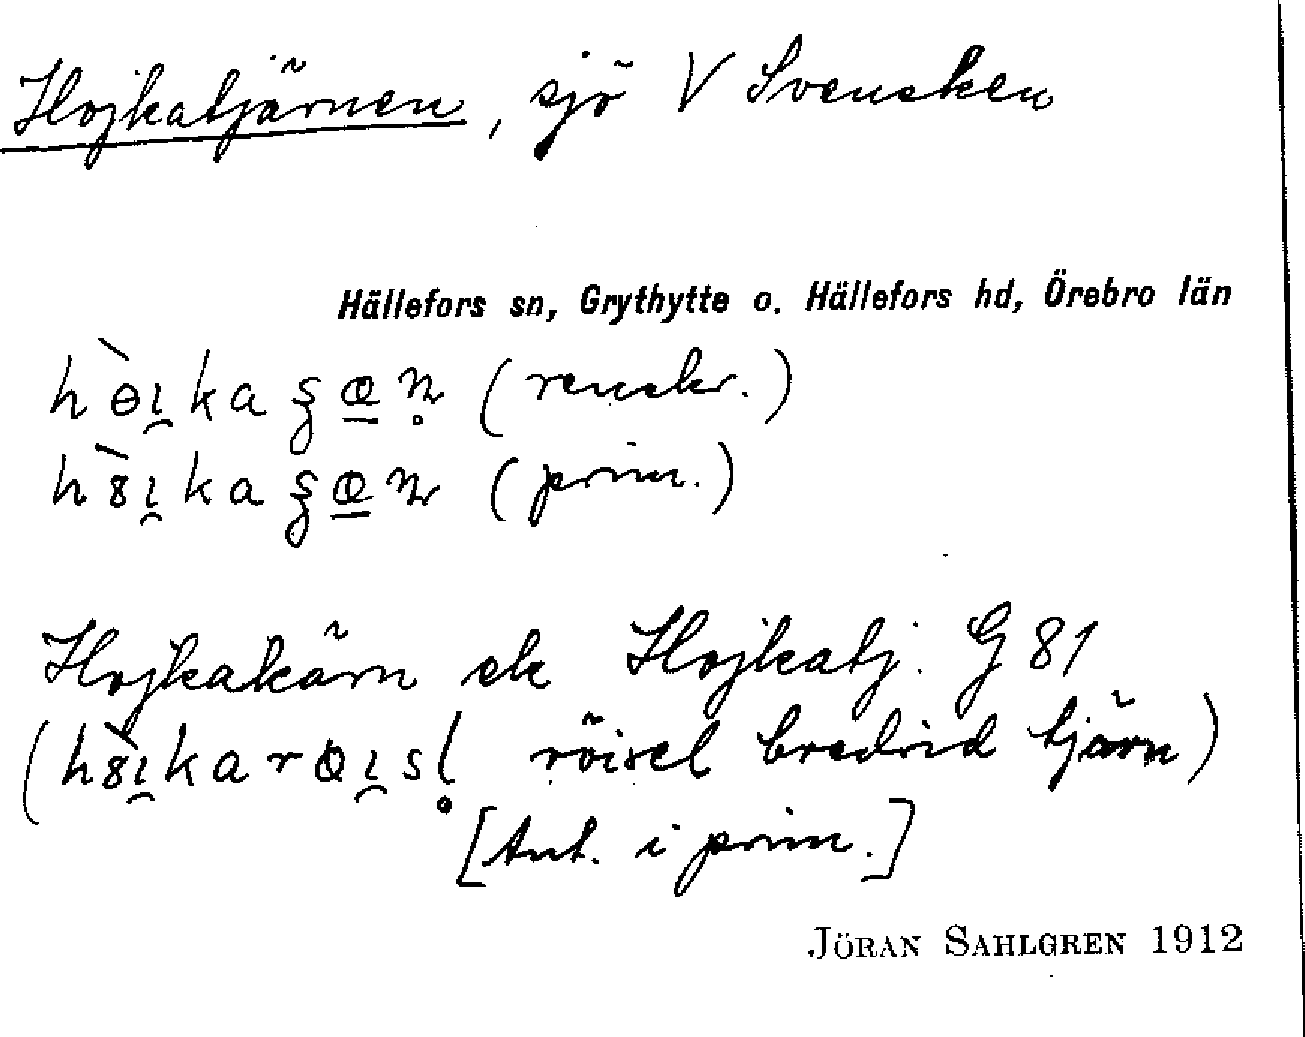 Hojkatjärnen, sjö V Svensken
Hällefors sn, Grythytte o. Hällefors hd, Örebro län
hɵ̀i̯kaʂꝋ̲n̥ (renskr.)
h8̀i̯kaʂꝋ̲n (prim.)
Hojkakärn ek Hojkatj. G 81
(h8̀i̯karꝋi̯sl̥ röisel bredvid tjärn)
[Ant. i prim.]
JÖRAN SAHLGREN 1912